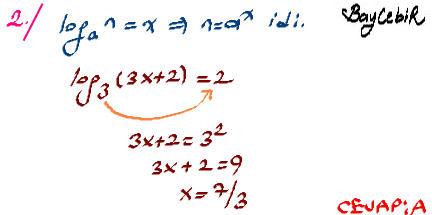 2./ logₐn = x ⇒ n = aˣ idi.
BayCebiR
log₃(3x+2) = 2
3x+2 = 3²
3x+2 = 9
x = 7/3
CEVAP: A